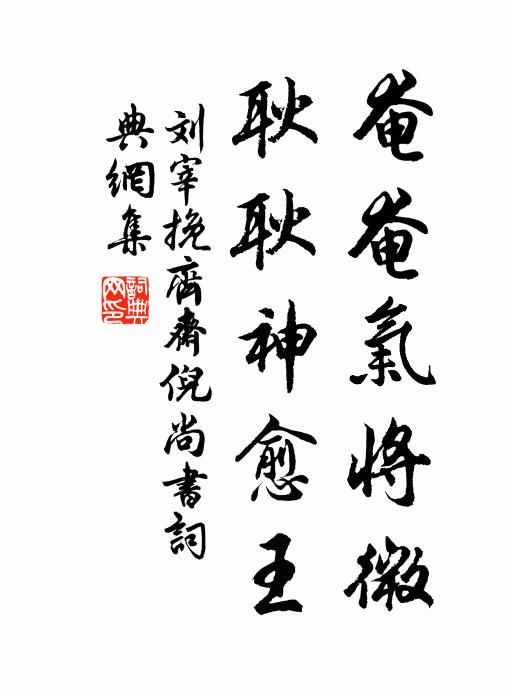 奄奄氣將微
耿耿神愈王
刘宰挽齊齋倪尚書詞
典網集
詞典网印